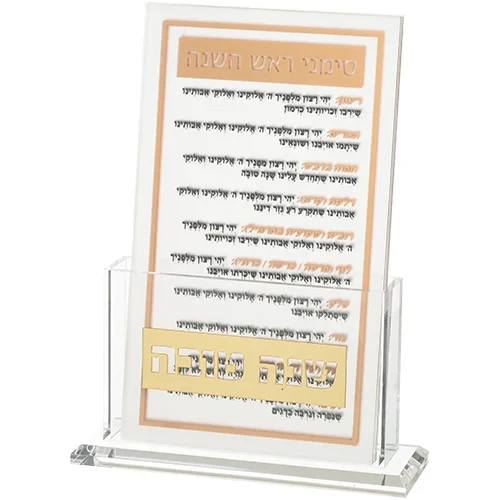 סימני ראש השנה
רימון: יְהִי רָצוֹן מִלְּפָנֶיךָ ה' אֱלוֹקֵינוּ וֵאלוֹקֵי אֲבוֹתֵינוּ
שֶׁיִּרְבּוּ זְכוּיוֹתֵינוּ כְּרִמּוֹן
תמרים: יְהִי רָצוֹן מִלְּפָנֶיךָ ה' אֱלוֹקֵינוּ וֵאלוֹקֵי אֲבוֹתֵינוּ
שֶׁיִּתַּמּוּ אוֹיְבֵינוּ וְשׂוֹנְאֵינוּ
תפוח בדבש: יְהִי רָצוֹן מִלְּפָנֶיךָ ה' אֱלוֹקֵינוּ וֵאלוֹקֵי
אֲבוֹתֵינוּ שֶׁתְּחַדֵּשׁ עָלֵינוּ שָׁנָה טוֹבָה
דלעת (קרא): יְהִי רָצוֹן מִלְּפָנֶיךָ ה' אֱלוֹקֵינוּ וֵאלוֹקֵי
אֲבוֹתֵינוּ שֶׁתִּקְרַע רֹעַ גְּזַר דִּינֵנוּ
רוביא יְהִי רָצוֹן מִלְּפָנֶיךָ
ה' אֱלוֹקֵינוּ וֵאלוֹקֵי אֲבוֹתֵינוּ שֶׁיִּרְבּוּ זְכוּיוֹתֵינוּ
יְהִי רָצוֹן מִלְּפָנֶיךָ
ה' אֱלוֹקֵינוּ וֵאלוֹקֵי אֲבוֹתֵינוּ שֶׁיִּכָּרְתוּ אוֹיְבֵינוּ
סלק: יְהִי רָצוֹן מִלְּפָנֶיךָ ה' אֱלוֹקֵינוּ וֵאלוֹקֵי אֲבוֹתֵינוּ
שֶׁיִּסְתַּלְּקוּ אוֹיְבֵינוּ
יְהִי רָצוֹן מִלְּפָנֶיךָ ה' אֱלוֹקֵינוּ וֵאלוֹקֵי אֲבוֹתֵינוּ
שנה טובה
שֶׁנִּפְרֶה וְנִרְבֶּה כַּדָּגִים